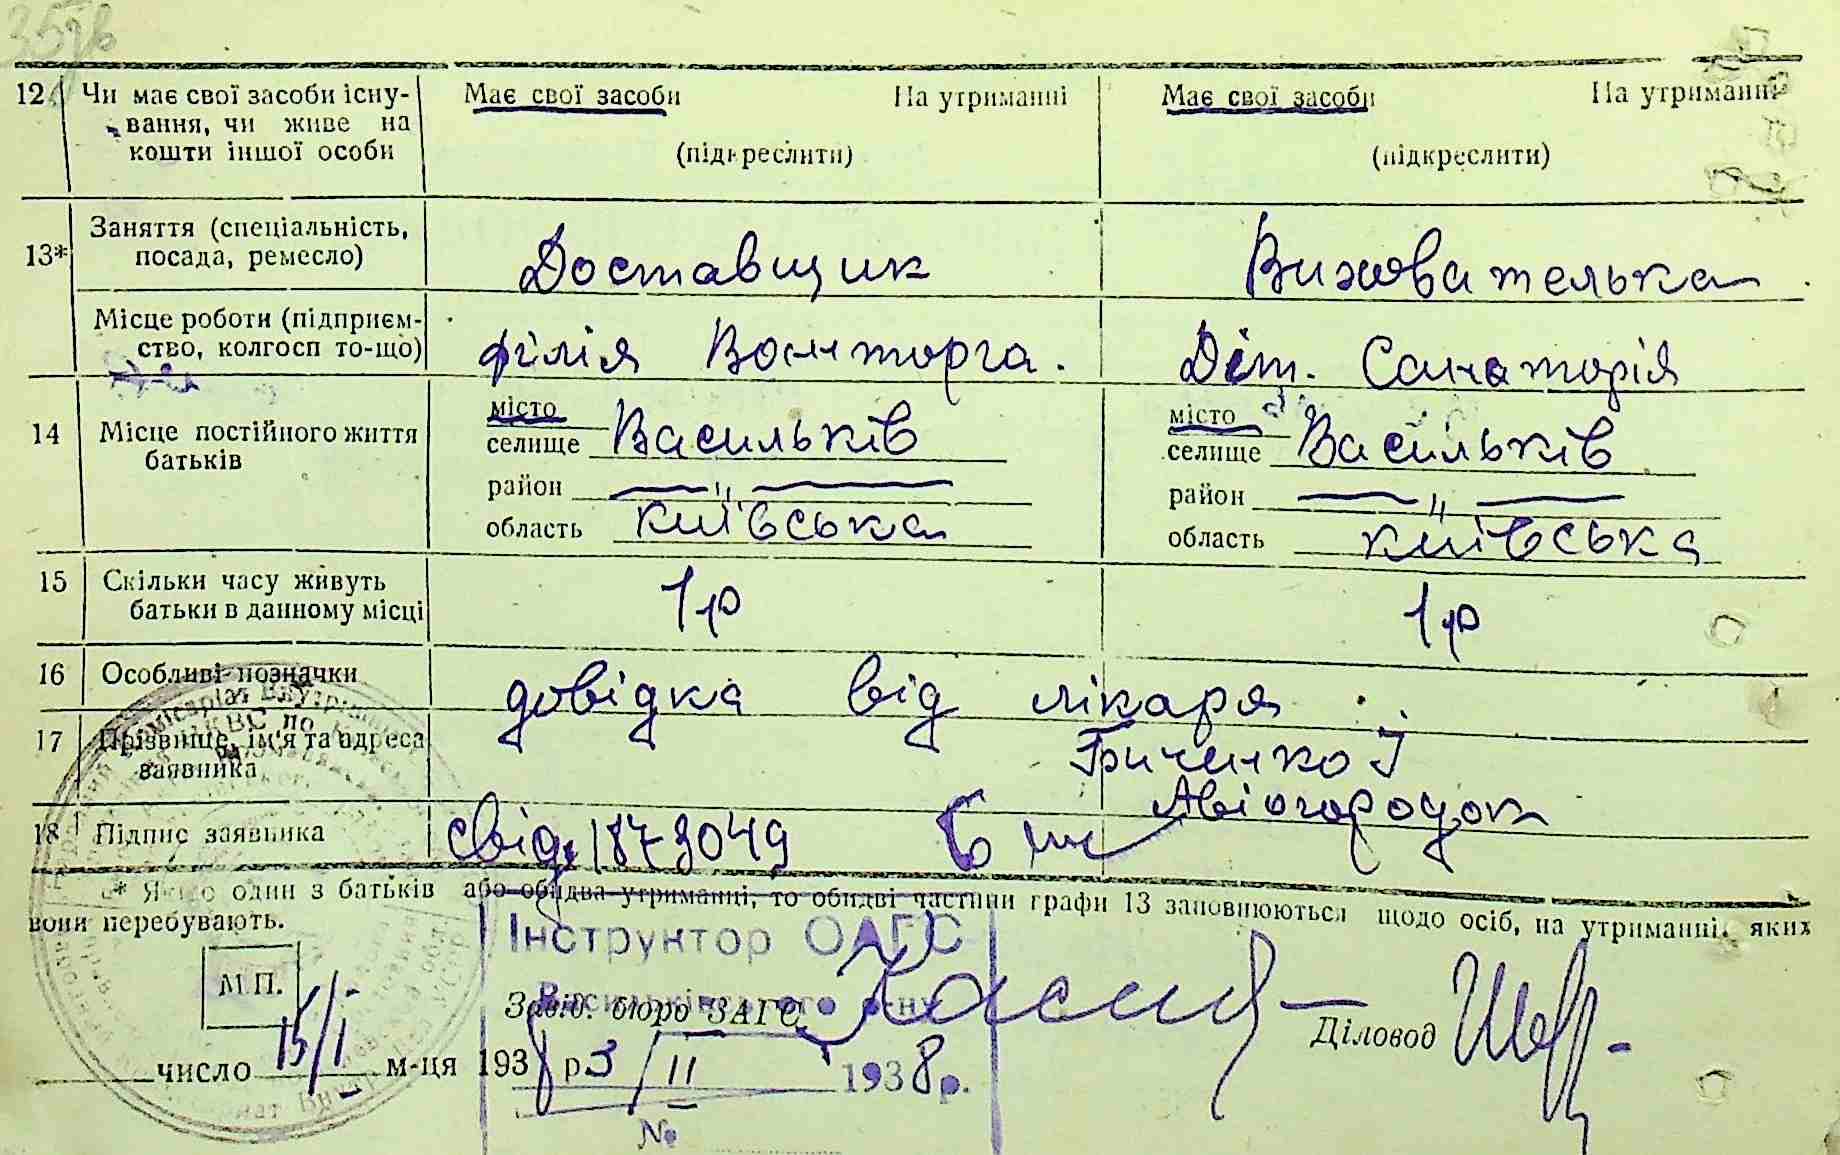 12 Чи має свої засоби існу- Має свої засоби На утриманні Має свої засоби На утриманні
вання, чи живе на
кошти іншої особи (підкреслити) (підкреслити)
13* Заняття (спеціальність,
посада, ремесло) Доставщик Вихователька
Місце роботи (підприєм-
ство, колгосп то-що) філія Воєнторга. Діт. Санаторія
14 Місце постійного життя
батьків
місто місто
селище Васильків селище Васильків
район — " — район — " —
область київська область київська
15 Скільки часу живуть
батьки в данному місці 1 р 1 р
16 Особливі позначки довідка від лікаря.
17 Прізвище, ім'я та адреса
заявника Гриченко І
Авіогородок
18 Підпис заявника свід. 1873049
* Якщо один з батьків або обидва утриманні, то обидві частини графи 13 заповнюються щодо осіб, на утриманні яких
вони перебувають.
Інструктор ОАГС
М.П.
Завід. бюро ЗАГС
Діловод
число 15/I м-ця 1938 р. 3/II 1938 р.
№